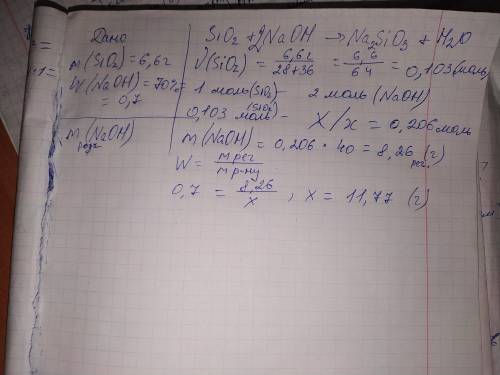 Дано
m(SiO₂) = 6,6г
W(NaOH) = 70% =
= 0,7
m(NaOH)
SiO₂ + 2NaOH → Na₂SiO₃ + H₂O
ν(SiO₂) = 6,6г / 28+36 = 6,6 / 64 = 0,103 (моль)
1 моль (SiO₂) – 2 моль (NaOH)
0,103 моль (SiO₂) – X / x = 0,206 моль
m(NaOH) = 0,206 · 40 = 8,26 (г)
W = m реч / m р-ну
0,7 = 8,26 / x , x = 11,77 (г)